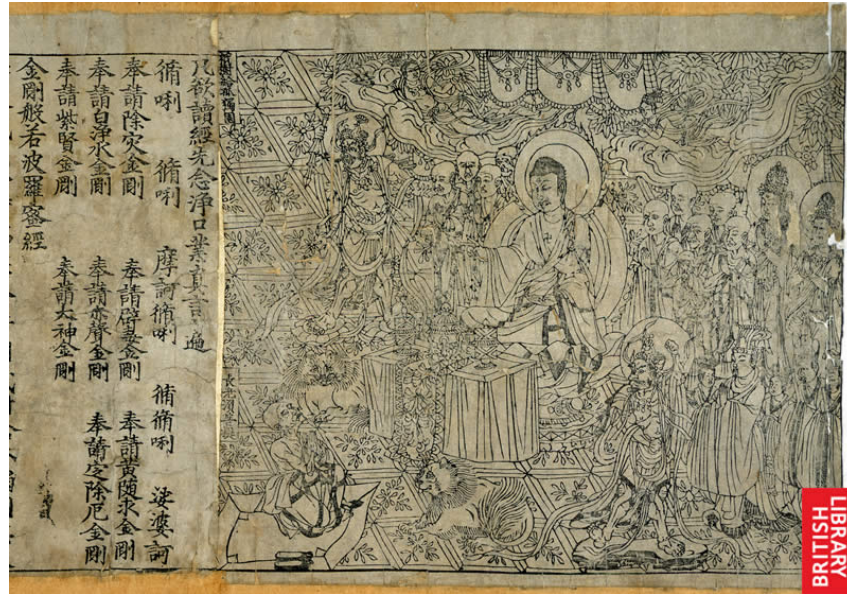 祇樹給孤獨園
長老須菩提
凡欲讀經先念淨口業真言一遍
脩唎 脩唎 摩訶脩唎 脩脩唎 娑婆訶
奉請除灾金剛 奉請辟毒金剛 奉請黃随求金剛
奉請白淨水金剛 奉請赤聲金剛 奉請定除厄金剛
奉請紫賢金剛 奉請大神金剛
金剛般若波羅蜜經
BRITISH
LIBRARY